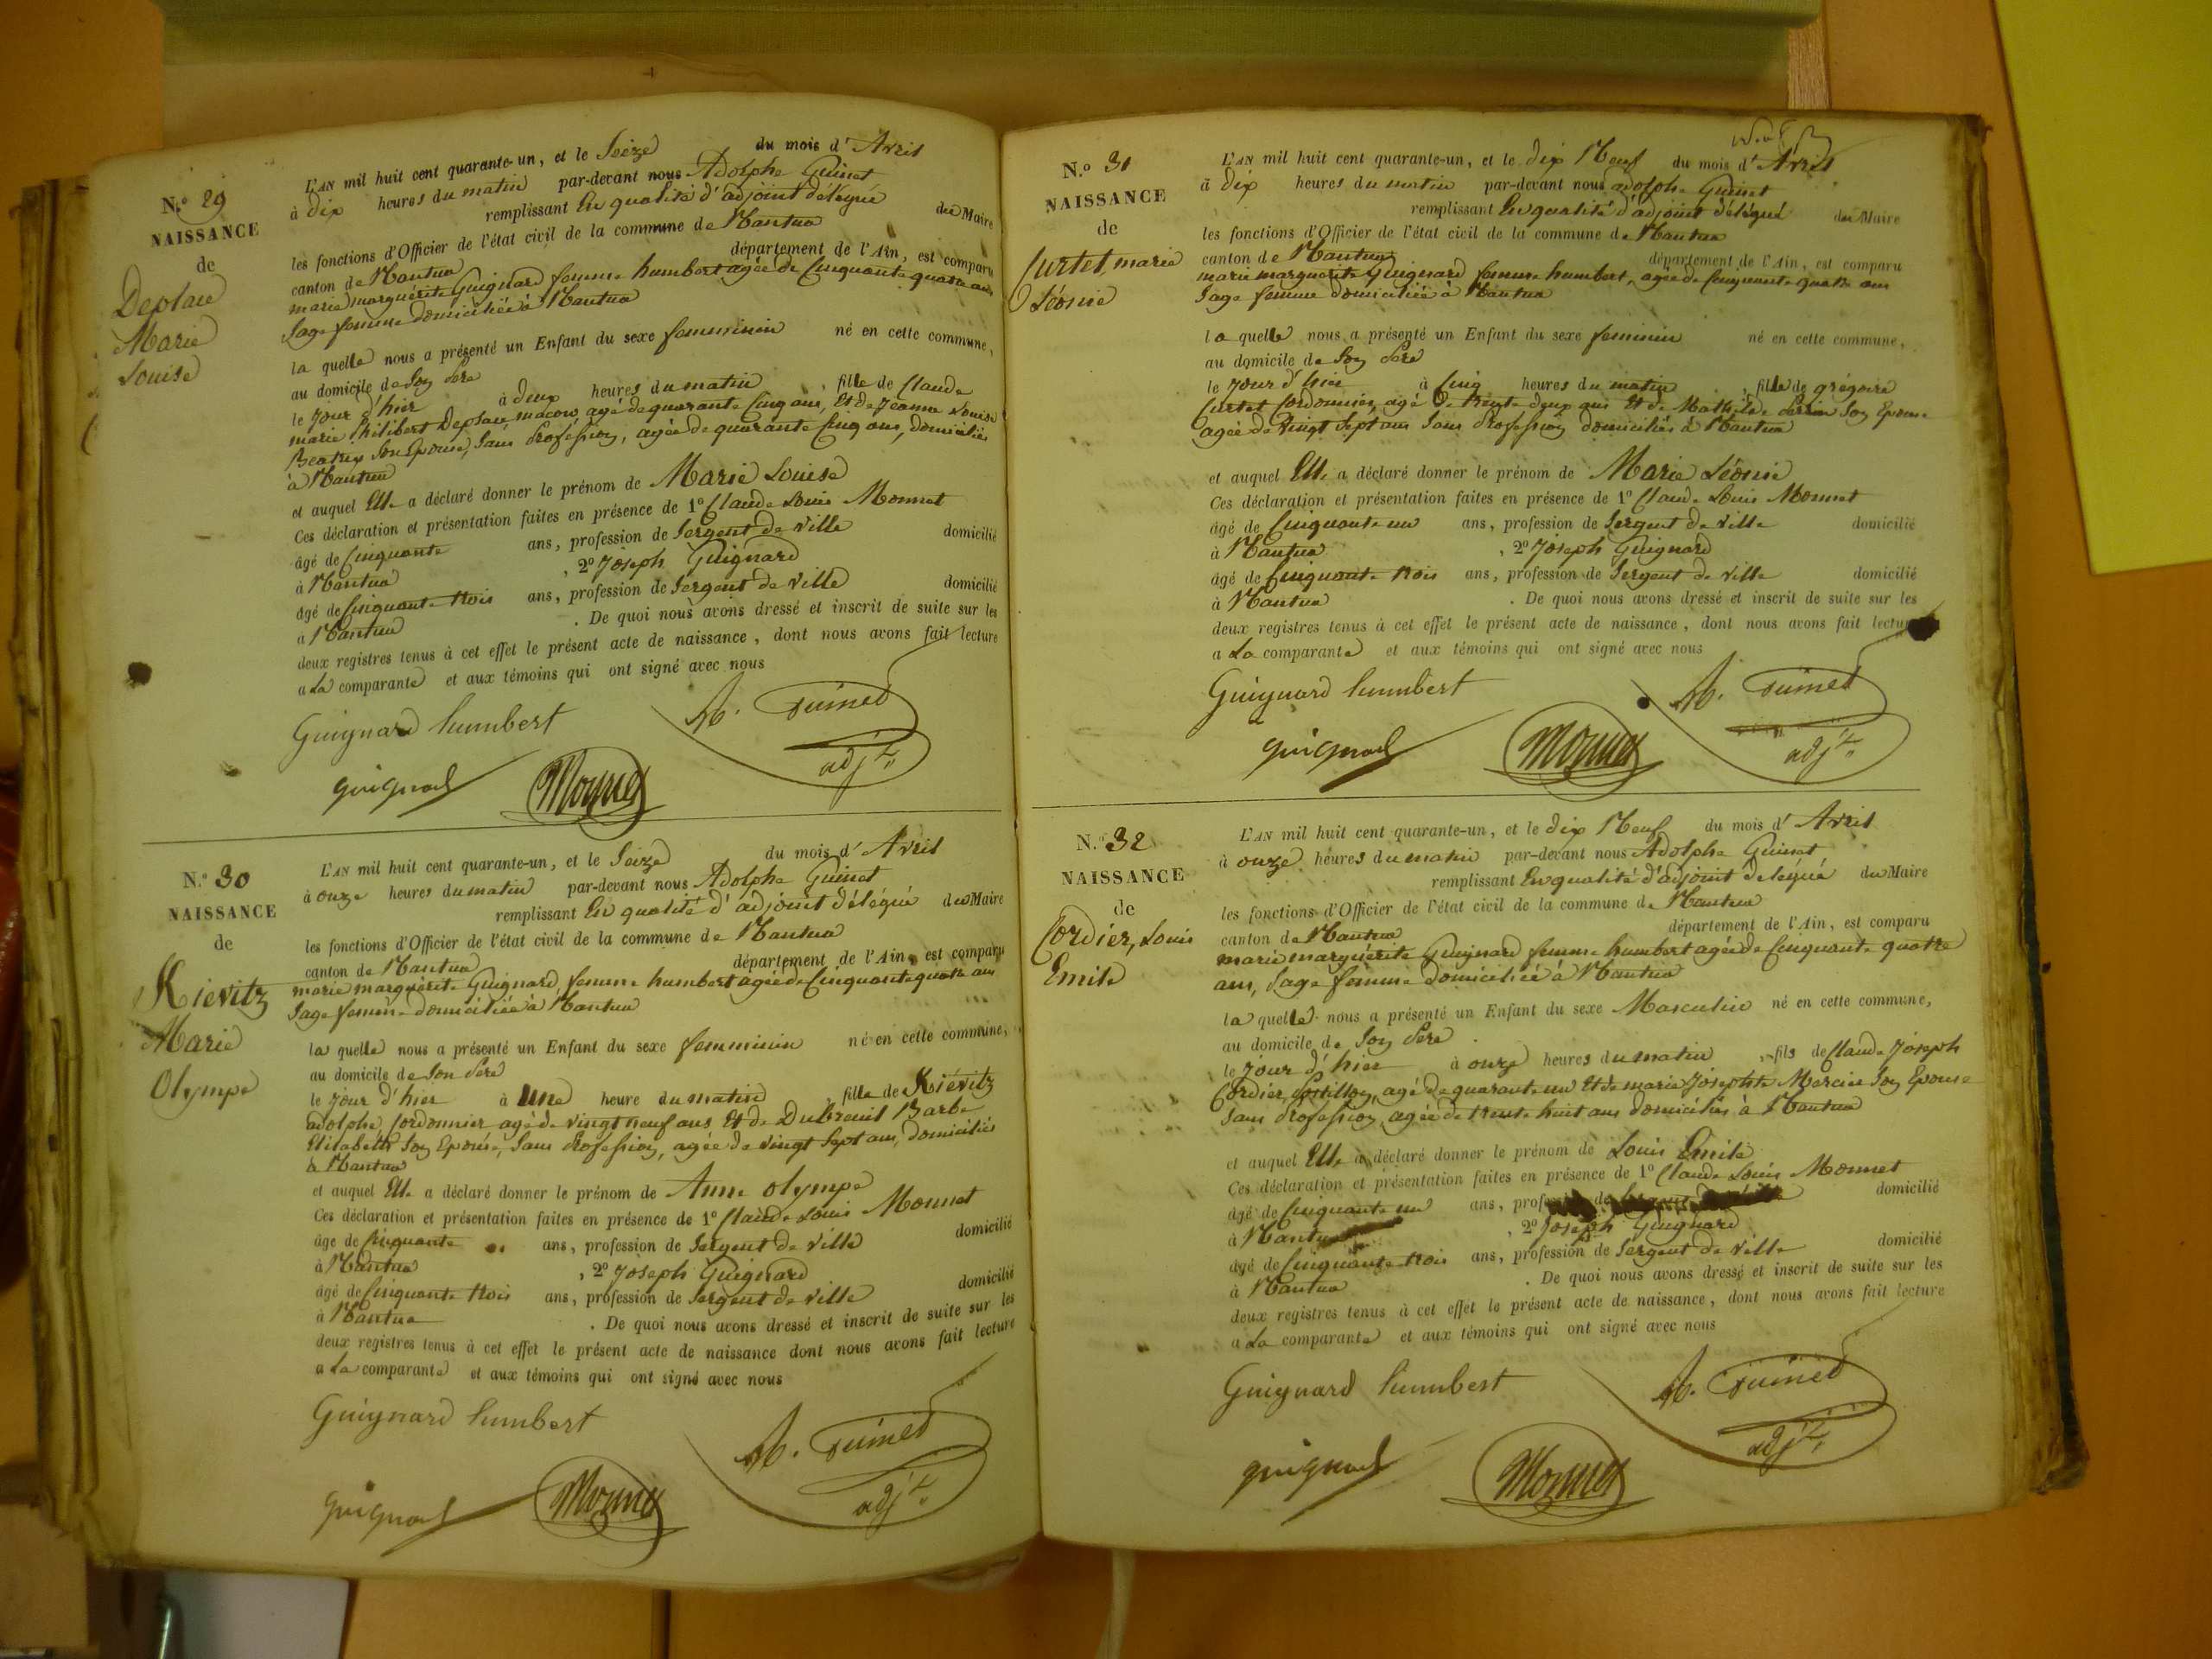 N.º 29
NAISSANCE
de
Deplace
Marie
Louise
L'AN mil huit cent quarante-un, et le Seize du mois d'Avril
à dix heures du matin par-devant nous Adolphe Guinet
remplissant En qualité d'adjoint délégué du Maire
les fonctions d'Officier de l'état civil de la commune de Nantua
canton de Nantua département de l'Ain, est comparu
marie marguérite Guignard femme humbert agée de Cinquante quatre ans
Sage femme domiciliée à Nantua
la quelle nous a présenté un Enfant du sexe femminin né en cette commune,
au domicile de Son Père
le jour d'hier à deux heures du matin, fille de Claude
marie Philibert Deplace macon, agé de quarante Cinq ans, Et de Jeanne Louise
Beatrix Son Epouse, Sans Profession, agée de quarante Cinq ans, domiciliés
à Nantua
et auquel Elle a déclaré donner le prénom de Marie Louise
Ces déclaration et présentation faites en présence de 1º Claude Louis Monnet
âgé de Cinquante ans, profession de Sergent de Ville domicilié
à Nantua, 2º Joseph Guignard
âgé de Cinquante trois ans, profession de Sergent de Ville domicilié
à Nantua. De quoi nous avons dressé et inscrit de suite sur les
deux registres tenus à cet effet le présent acte de naissance, dont nous avons fait lecture
a La comparante et aux témoins qui ont signé avec nous
Guignard humbert
A. Guinet
adjt.
guignard
Monnet
N.º 30
NAISSANCE
de
Kievitz
Marie
Olympe
L'AN mil huit cent quarante-un, et le Seize du mois d'Avril
à onze heures du matin par-devant nous Adolphe Guinet
remplissant En qualité d'adjoint délégué du Maire
les fonctions d'Officier de l'état civil de la commune de Nantua
canton de Nantua département de l'Ain, est comparu
marie marguérite Guignard, femme humbert agée de Cinquante quatre ans
Sage femme domiciliée à Nantua
la quelle nous a présenté un Enfant du sexe femminin né en cette commune,
au domicile de Son Père
le jour d'hier à Une heure du matin, fille de Kiévitz
adolphe, Cordonnier agé de vingt neuf ans Et de Dubreuil Barbe
Elisabeth Son Epouse, Sans Profession, agée de vingt Sept ans, domiciliés
à Nantua
et auquel Elle a déclaré donner le prénom de Anne Olympe
Ces déclaration et présentation faites en présence de 1º Claude Louis Monnet
âgé de Cinquante ans, profession de Sergent de Ville domicilié
à Nantua, 2º Joseph Guignard
âgé de Cinquante trois ans, profession de Sergent de Ville domicilié
à Nantua. De quoi nous avons dressé et inscrit de suite sur les
deux registres tenus à cet effet le présent acte de naissance dont nous avons fait lecture
a La comparante et aux témoins qui ont signé avec nous
Guignard humbert
A. Guinet
adjt.
guignard
Monnet
N.º 31
NAISSANCE
de
Curtet, marie
Léonie
L'AN mil huit cent quarante-un, et le dix Neuf du mois d'Avril
à dix heures du matin par-devant nous adolphe Guinet
remplissant En qualité d'adjoint délégué du Maire
les fonctions d'Officier de l'état civil de la commune de Nantua
canton de Nantua département de l'Ain, est comparu
marie marguerite Guignard femme humbert, agée de Cinquante quatre ans
Sage femme domiciliée à Nantua
la quelle nous a présenté un Enfant du sexe feminin né en cette commune,
au domicile de Son Père
le jour d'hier à Cinq heures du matin, fille de grégoire
Curtet Cordonnier, agé de trente deux ans Et de Mathilde Perrin Son Epouse
agée de Vingt Sept ans Sans Profession domiciliés à Nantua
et auquel Elle a déclaré donner le prénom de Marie Léonie
Ces déclaration et présentation faites en présence de 1º Claude Louis Monnet
âgé de Cinquante un ans, profession de Sergent de Ville domicilié
à Nantua, 2º Joseph Guignard
âgé de Cinquante trois ans, profession de Sergent de Ville domicilié
à Nantua. De quoi nous avons dressé et inscrit de suite sur les
deux registres tenus à cet effet le présent acte de naissance, dont nous avons fait lecture
a La comparante et aux témoins qui ont signé avec nous
Guignard humbert
A. Guinet
adjt.
guignard
Monnet
N.º 32
NAISSANCE
de
Cordier, Louis
Emile
L'AN mil huit cent quarante-un, et le dix Neuf du mois d'Avril
à onze heures du matin par-devant nous Adolphe Guinet
remplissant En qualité d'adjoint délégué du Maire
les fonctions d'Officier de l'état civil de la commune de Nantua
canton de Nantua département de l'Ain, est comparu
marie marguérite Guignard femme humbert agée de Cinquante quatre
ans, Sage femme domiciliée à Nantua
la quelle nous a présenté un Enfant du sexe Masculin né en cette commune,
au domicile de Son Père
le jour d'hier à onze heures du matin, fils de Claude Joseph
Cordier, Postillon, agé de quarante un Et de marie Josephte Mercier Son Epouse
Sans Profession, agée de trente huit ans domiciliés à Nantua
et auquel Elle a déclaré donner le prénom de Louis Emile
Ces déclaration et présentation faites en présence de 1º Claude Louis Monnet
âgé de Cinquante un ans, profession de Sergent de ville domicilié
à Nantua, 2º Joseph Guignard
âgé de Cinquante trois ans, profession de Sergent de Ville domicilié
à Nantua. De quoi nous avons dressé et inscrit de suite sur les
deux registres tenus à cet effet le présent acte de naissance, dont nous avons fait lecture
a La comparante et aux témoins qui ont signé avec nous
Guignard humbert
A. Guinet
adjt.
guignard
Monnet